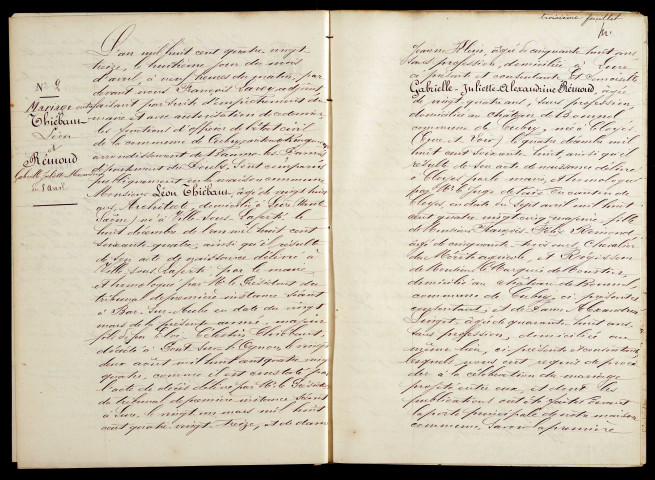 troisième feuillet
N° 2
Mariage
Thiébaut
Léon
et
Rémond
Gabrielle Juliette Alexandrine
du 8 Avril
L'an mil huit cent quatre vingt
treize, le huitième jour du mois
d'avril, à neuf heures du matin, par
devant nous François adjoint
faisant par suite d'empêchement du
maire et avec autorisation de ce dernier
les fonctions d'officier de l'état civil
de la commune de Cubry, canton de
arrondissement de Baume les Dames
département du Doubs, sont comparus
publiquement en la maison commune
Monsieur Léon Thiébaut, âgé de vingt huit
ans, Architecte, domicilié à Lure (Haute
Saône) né à Ville sous Laferté, le
huit décembre de l'an mil huit cent
soixante quatre, ainsi qu'il résulte
de son acte de naissance délivré à
Ville sous Laferté par le maire
et homologué par M. le Président du
tribunal de première instance séant
à Bar sur Aube en date du vingt
mars de la présente année, majeur
fils de feu Célestin Thiébaut
décédé à Pont sur l'Ognon le vingt
deux août mil huit cent quatre vingt
quatre, comme il est constaté par
l'acte de décès délivré par M. le Président
du tribunal de première instance séant
à Lure, le vingt un mars mil huit
cent quatre vingt treize, et de dame
Jeanne âgée de cinquante huit ans
sans profession, domiciliée à Lure
ci présente et consentante Et demoiselle
Gabrielle-Juliette-Alexandrine Rémond, âgée
de vingt quatre ans, sans profession,
domiciliée au château de Bournel
commune de Cubry, née à Cloyes
(Eure et Loir) le quatre décembre mil
huit cent soixante huit ainsi qu'il
résulte de son acte de naissance délivré
à Cloyes par le maire, et homologué
par M. le Juge de Paix du canton de
Cloyes, en date du sept avril mil huit
cent quatre vingt treize, majeure, fille
de Monsieur François Félix Rémond
âgé de cinquante trois ans, Chevalier
du Mérite agricole, et Régisseur
de Monsieur le Marquis de Moustier,
domicilié au château de Bournel
commune de Cubry, ci présent et
consentant, et de Dame Alexandrine
âgée de quarante huit ans,
sans profession, domiciliée au
même lieu, ci présente et consentante
lesquels nous ont requis de procéder
à la célébration du mariage
projeté entre eux, et dont les
publications ont été faites devant
la porte principale de notre maison
commune, savoir la première